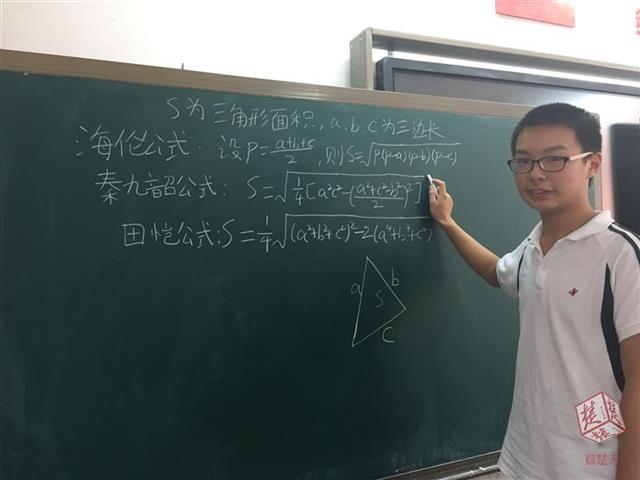 S为三角形面积,a.b.c为三边长
海伦公式:设P=\frac{a+b+c}{2},则S=√(P(P-a)(P-b)(P-c))
秦九韶公式:S=√(\frac{1}{4}[a²c²-(\frac{a²+c²-b²}{2})²])
田恺公式:S=\frac{1}{4}√((a²+b²+c²)²-2(a⁴+b⁴+c⁴))
a
b
S
C
看楚天